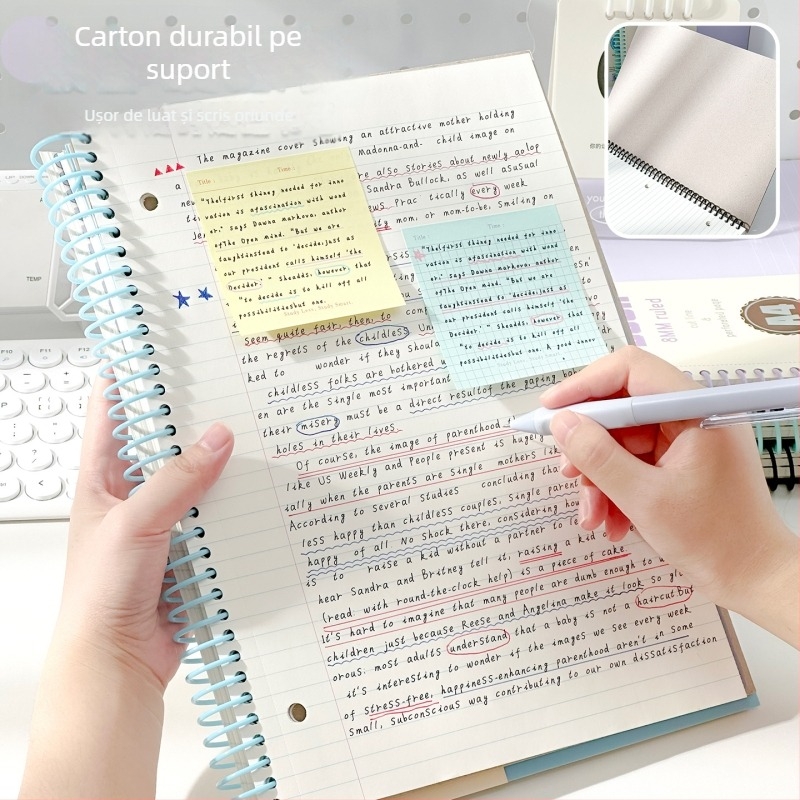 Carton durabil pe
suport
Ușor de luat și scris oriunde
The magazine cover showing an attractive mother holding
Madonna-and- child image on
re also Stories about newly adop
Sandra Bullock, as well asusual
ews Prac tically every week
ty mom, or mom-to-be, smiling on
Title : Time :
"Thelfirst thing needed for inno
vation is afascination with wond
er.' says Dawna markova, author
ofThe Open mind. "But we are
taughtinstead to 'decide,just as
our president calls himself 'the
Decider'." Sheadds, however that
"to decide is to kill off all
possibilitiesbut one.
Study Less, Study Smart.
Title : Time :
"Thelfirst thing needed for inno
vation is afascination with wond
er.' says Dawna markova, author
ofThe Open mind. "But we are
taughtinstead to 'decide,just as
our president calls himself 'the
Decider.' " Sheadds, however that
"to decide is to kill off all
possibilitiesbut one. A good inno
seem quite fair, then, to
the regrets of the childless
ked to wonder if they should
childless folks are bothered
en are the single most important
their misery must be a direct resultof the gaping
holes in their lives.
Of course, the image of parenthood
like US Weekly and People present is hugely
ially when the parents are Single mothers like
According to Several Studies concluding that
less happy than childless couples, Single parent
happy of all No shock there, considering how
is to raise a kid without a partner to
hear Sandra and Britney tell it, raising a kid
(read with round-the-clock help) is a piece of cake
It's hard to imagine that many people are dumb enough to
children just because Reese and Angelina make it look So
orous. most adults understand that a baby is not a haircut But
it's interesting to wonder if the images we see every week
of stress-free, happiness-enhancing parenthood aren't in some
Small, subconscious way contributing to our own dissatisfaction
8MM ruled
A4
TEMP
F10
F11
F12